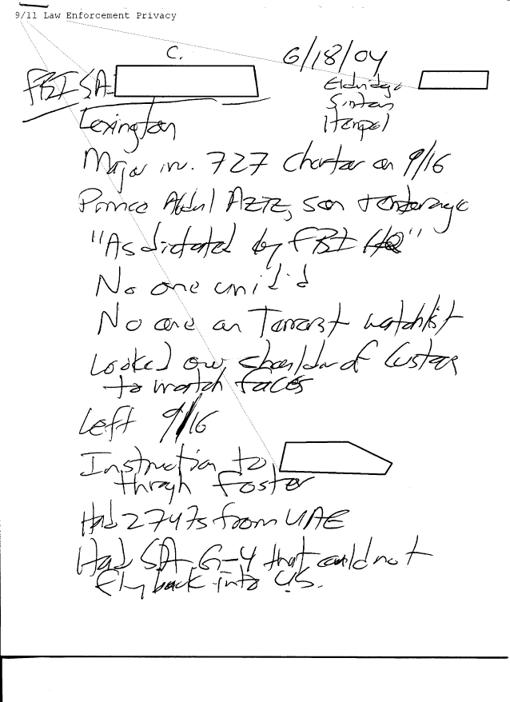 9/11 Law Enforcement Privacy
C.
6/18/04
FBI SA
Eldridge
Lexington
Major in. 727 charter on 9/16
Prince Abdul Aziz, son + entourage
"As dictated by FBI HQ"
No one unid'd
No one on Terrorist watchlist
Looked over shoulder of Customs
to match faces
Left 9/16
Instruction to
through Foster
Had 2 747s from UAE
Had SA G-4 that could not
fly back into U.S.